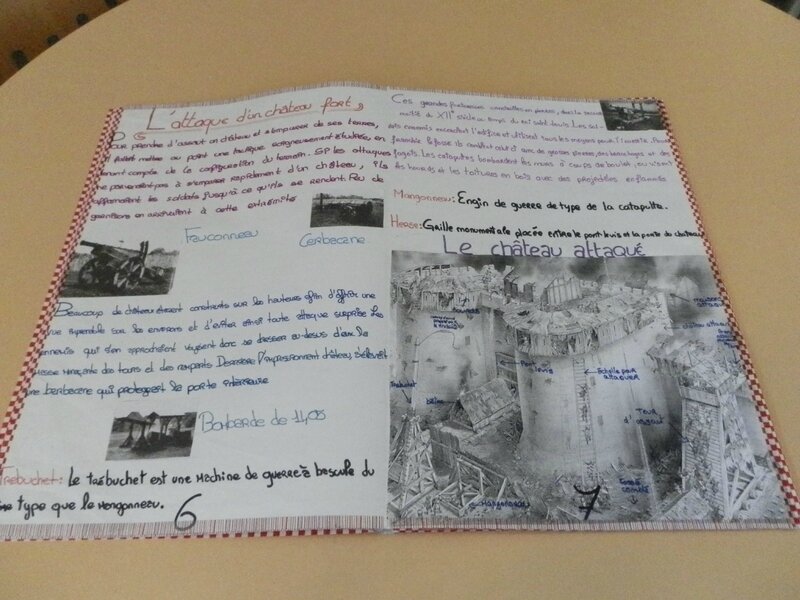 L'attaque d'un château fort
Pour prendre d'assaut un château et s'emparer de ses terres,
il fallait mettre au point une tactique soigneusement étudiée, en
tenant compte de la configuration du terrain. Si les attaques
ne parvenaient pas à s'emparer rapidement d'un château, ils
affamaient les soldats jusqu'à ce qu'ils se rendent. Peu de
garnisons en arrivaient à cette extrémité
Fauconneau
Cerbacane
Beaucoup de château étaient construits sur les hauteurs afin d'offrir une
vue imprenable sur les environs et d'éviter ainsi toute attaque surprise Les
ennemis qui s'en approchaient voyaient donc se dresser au-dessus d'eux la
masse menaçante des tours et des remparts Derrière l'impressionnant château,
une berbacane qui protégeait la porte intérieure
Bombarde de 1408
Trébuchet: Le trébuchet est une machine de guerre à bascule du
type que le Mangonneau.
6
Ces grandes forteresses construites en pierres, dans la seconde
moitié du XIIe siècle au temps du roi saint Louis. Les sol-
dats ennemis encerclent l'édifice et utilisent tous les moyens pour l'investir.
fagots. Les catapultes bombardent les murs à coups de boulet, ou visent
les hourds et les toitures en bois avec des projectiles enflammés
Mangonneau: Engin de guerre de type de la catapulte.
Herse: Grille monumentale placée entre le pont levis et la porte du château
Le château attaqué
hourds
Pont levis
Echelle pour attaquer
Trébuchet
Bélier
Tour d'
Fossé comblé
Mangonneau
7